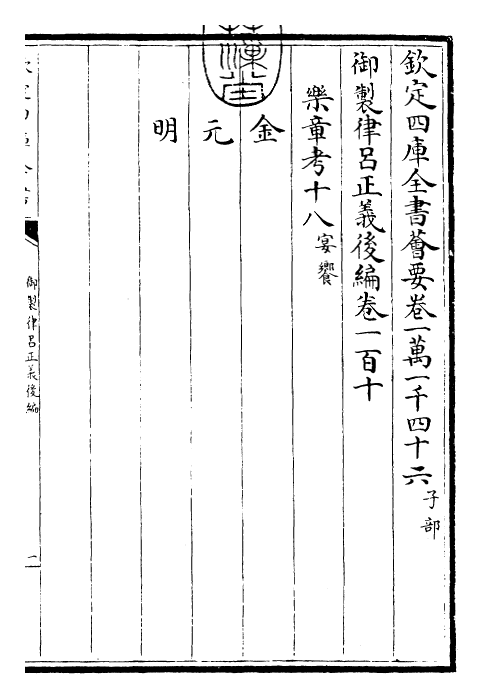 欽定四庫全書薈要卷一萬一千四十六 子部
御製律呂正義後編卷一百十
樂章考十八 宴饗
金
元
明
御製律呂正義後編
一